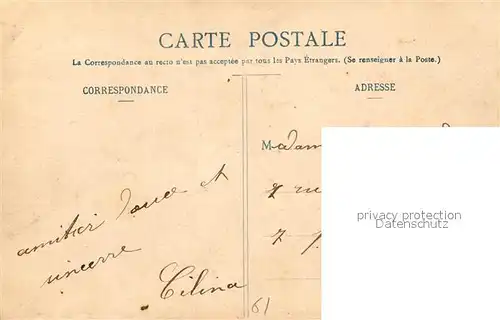 CARTE POSTALE
La Correspondance au recto n'est pas acceptée par tous les Pays Étrangers. (Se renseigner à la Poste.)
CORRESPONDANCE
amitier et
sincerre
Cilina
ADRESSE
Madam
7 ru
7
61
privacy protection
Datenschutz